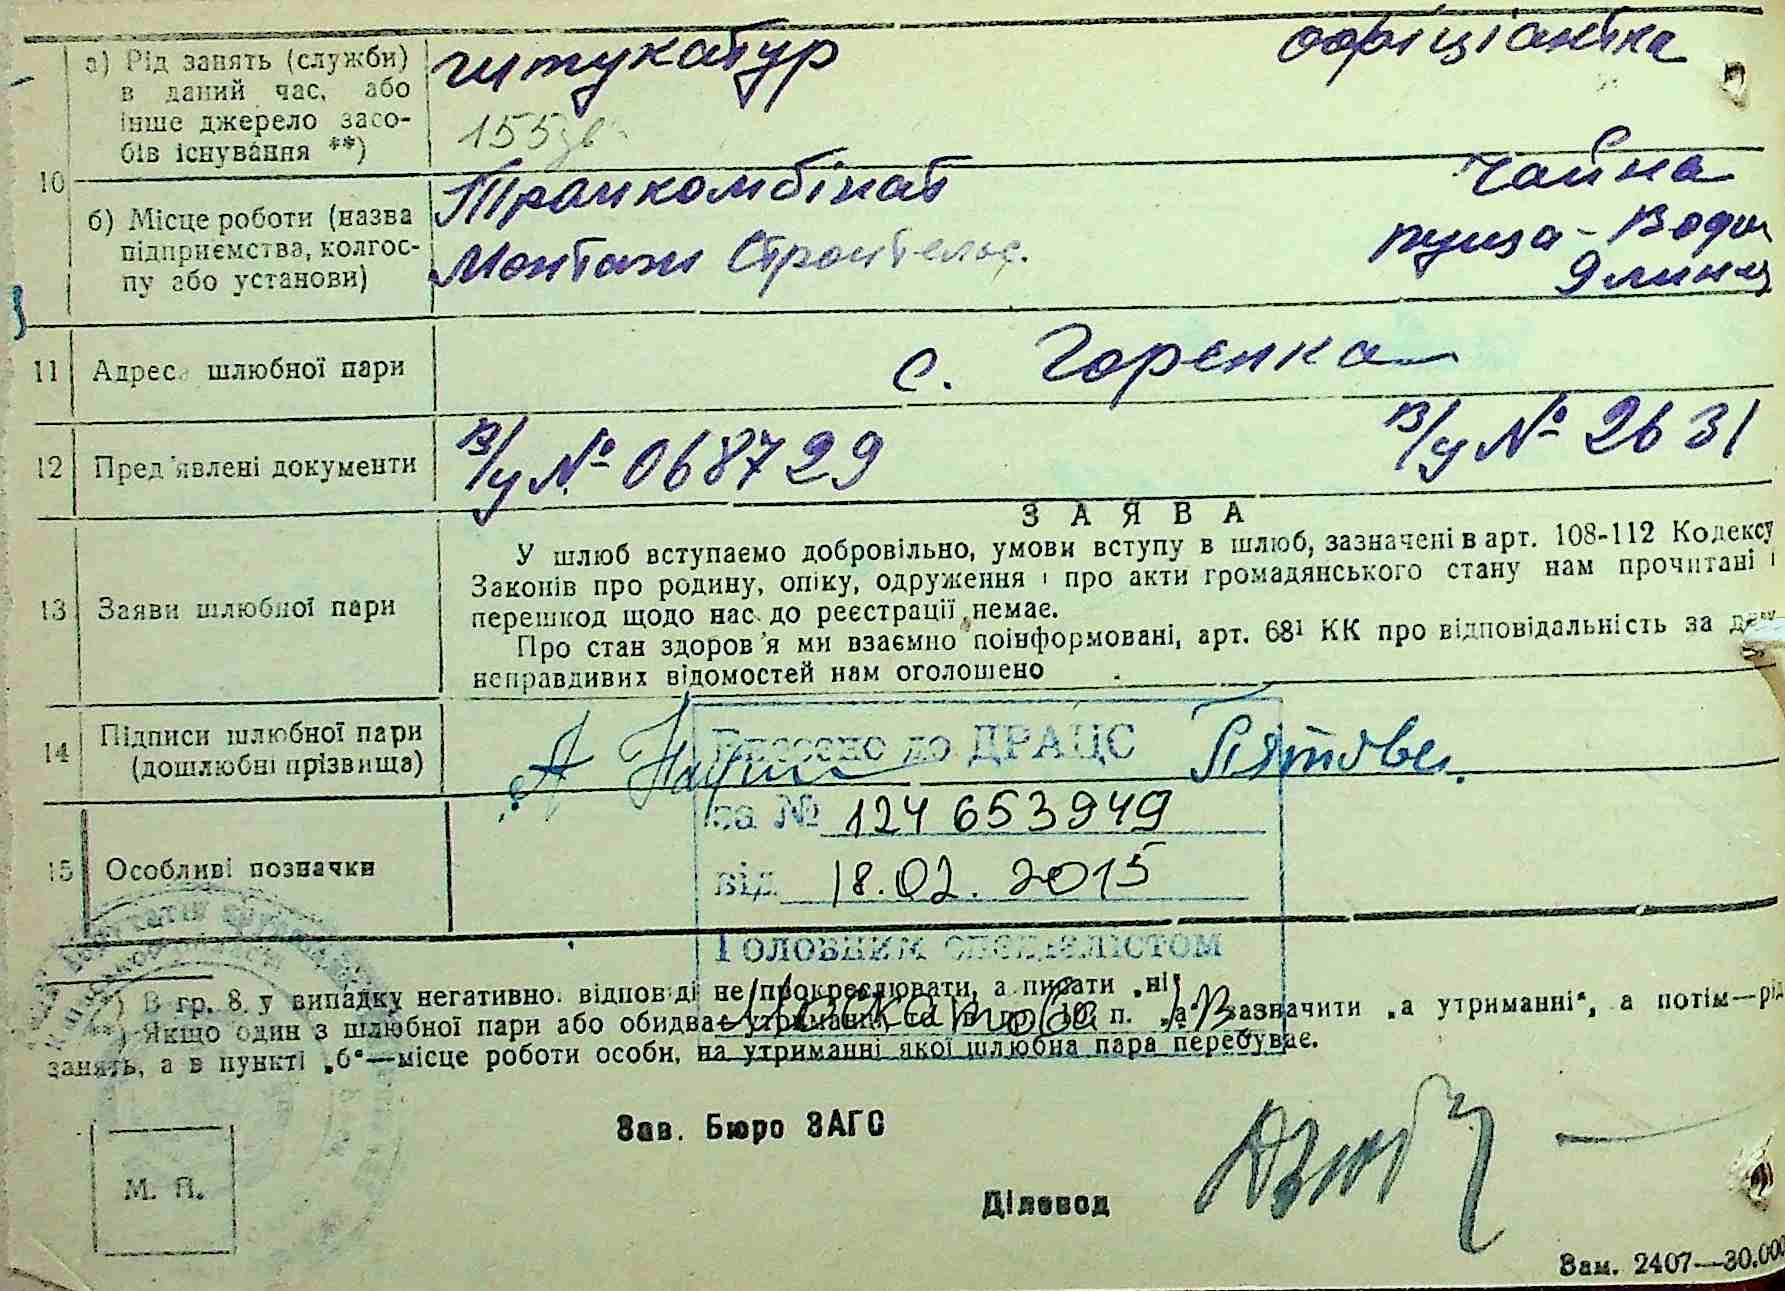 10
а) Рід занять (служби)
в даний час, або
інше джерело засо-
бів існування **)
штукатур
155
офіціантка
б) Місце роботи (назва
підприємства, колгос-
пу або установи)
Монтажн Строительс.
Чайна
пуща - Води
11 Адреса шлюбної пари с. Горенка
12 Пред'явлені документи в/у № 068729 в/у № 2631
13 Заяви шлюбної пари
ЗАЯВА
У шлюб вступаємо добровільно, умови вступу в шлюб, зазначені в арт. 108-112 Кодексу
Законів про родину, опіку, одруження і про акти громадянського стану нам прочитані і
перешкод щодо нас до реєстрації немає.
Про стан здоров'я ми взаємно поінформовані, арт. 68¹ КК про відповідальність за
неправдивих відомостей нам оголошено
14 Підписи шлюбної пари
(дошлюбні прізвища)
15 Особливі позначки
Внесено до ДРАЦС
за № 124 653949
від 18.02.2015
Головним спеціалістом
*) В гр. 8 у випадку негативно. відповіді не прокреслювати, а писати „ні“
) Якщо один з шлюбної пари або обидва утриманці, то в гр. 10 п. „а“ зазначити „а утриманні“, а потім—рід
занять, а в пункті „б“—місце роботи особи, на утриманні якої шлюбна пара перебуває.
Зав. Бюро ЗАГС
Діловод
М. П.
Зам. 2407—30.000